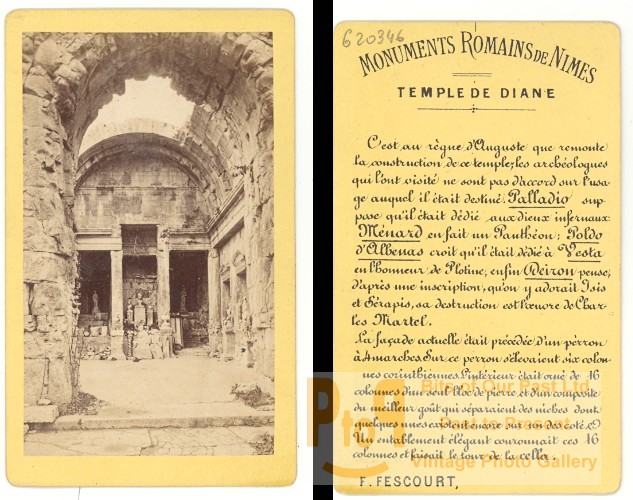 620346
MONUMENTS ROMAINS DE NIMES
TEMPLE DE DIANE
C'est au règne d'Auguste que remonte
la construction de ce temple; les archéologues
qui l'ont visité ne sont pas d'accord sur l'usa-
ge auquel il était destiné: Palladio sup-
pose qu'il était dédié aux dieux infernaux
Ménard en fait un Panthéon; Poldo
d'Albenas croit qu'il était dédié à Vesta
en l'honneur de Plotine; enfin Deiron pense,
d'après une inscription, qu'on y adorait Isis
et Sérapis, sa destruction est l'œuvre de Char-
les Martel.
La façade actuelle était précédée d'un pèrron
à 4 marches. Sur ce perron s'élevaient six colon-
nes corinthiennes. L'intérieur était orné de 16
colonnes d'un seul bloc de pierre et d'un composite
du meilleur goût qui séparaient des niches dont
quelques unes existent encore sur un des coté, &
Un entablement élégant couronnait ces 16
colonnes et faisait le tour de la cella.
F. FESCOURT,
Bits of Our Past Ltd
Vintage Photo Gallery